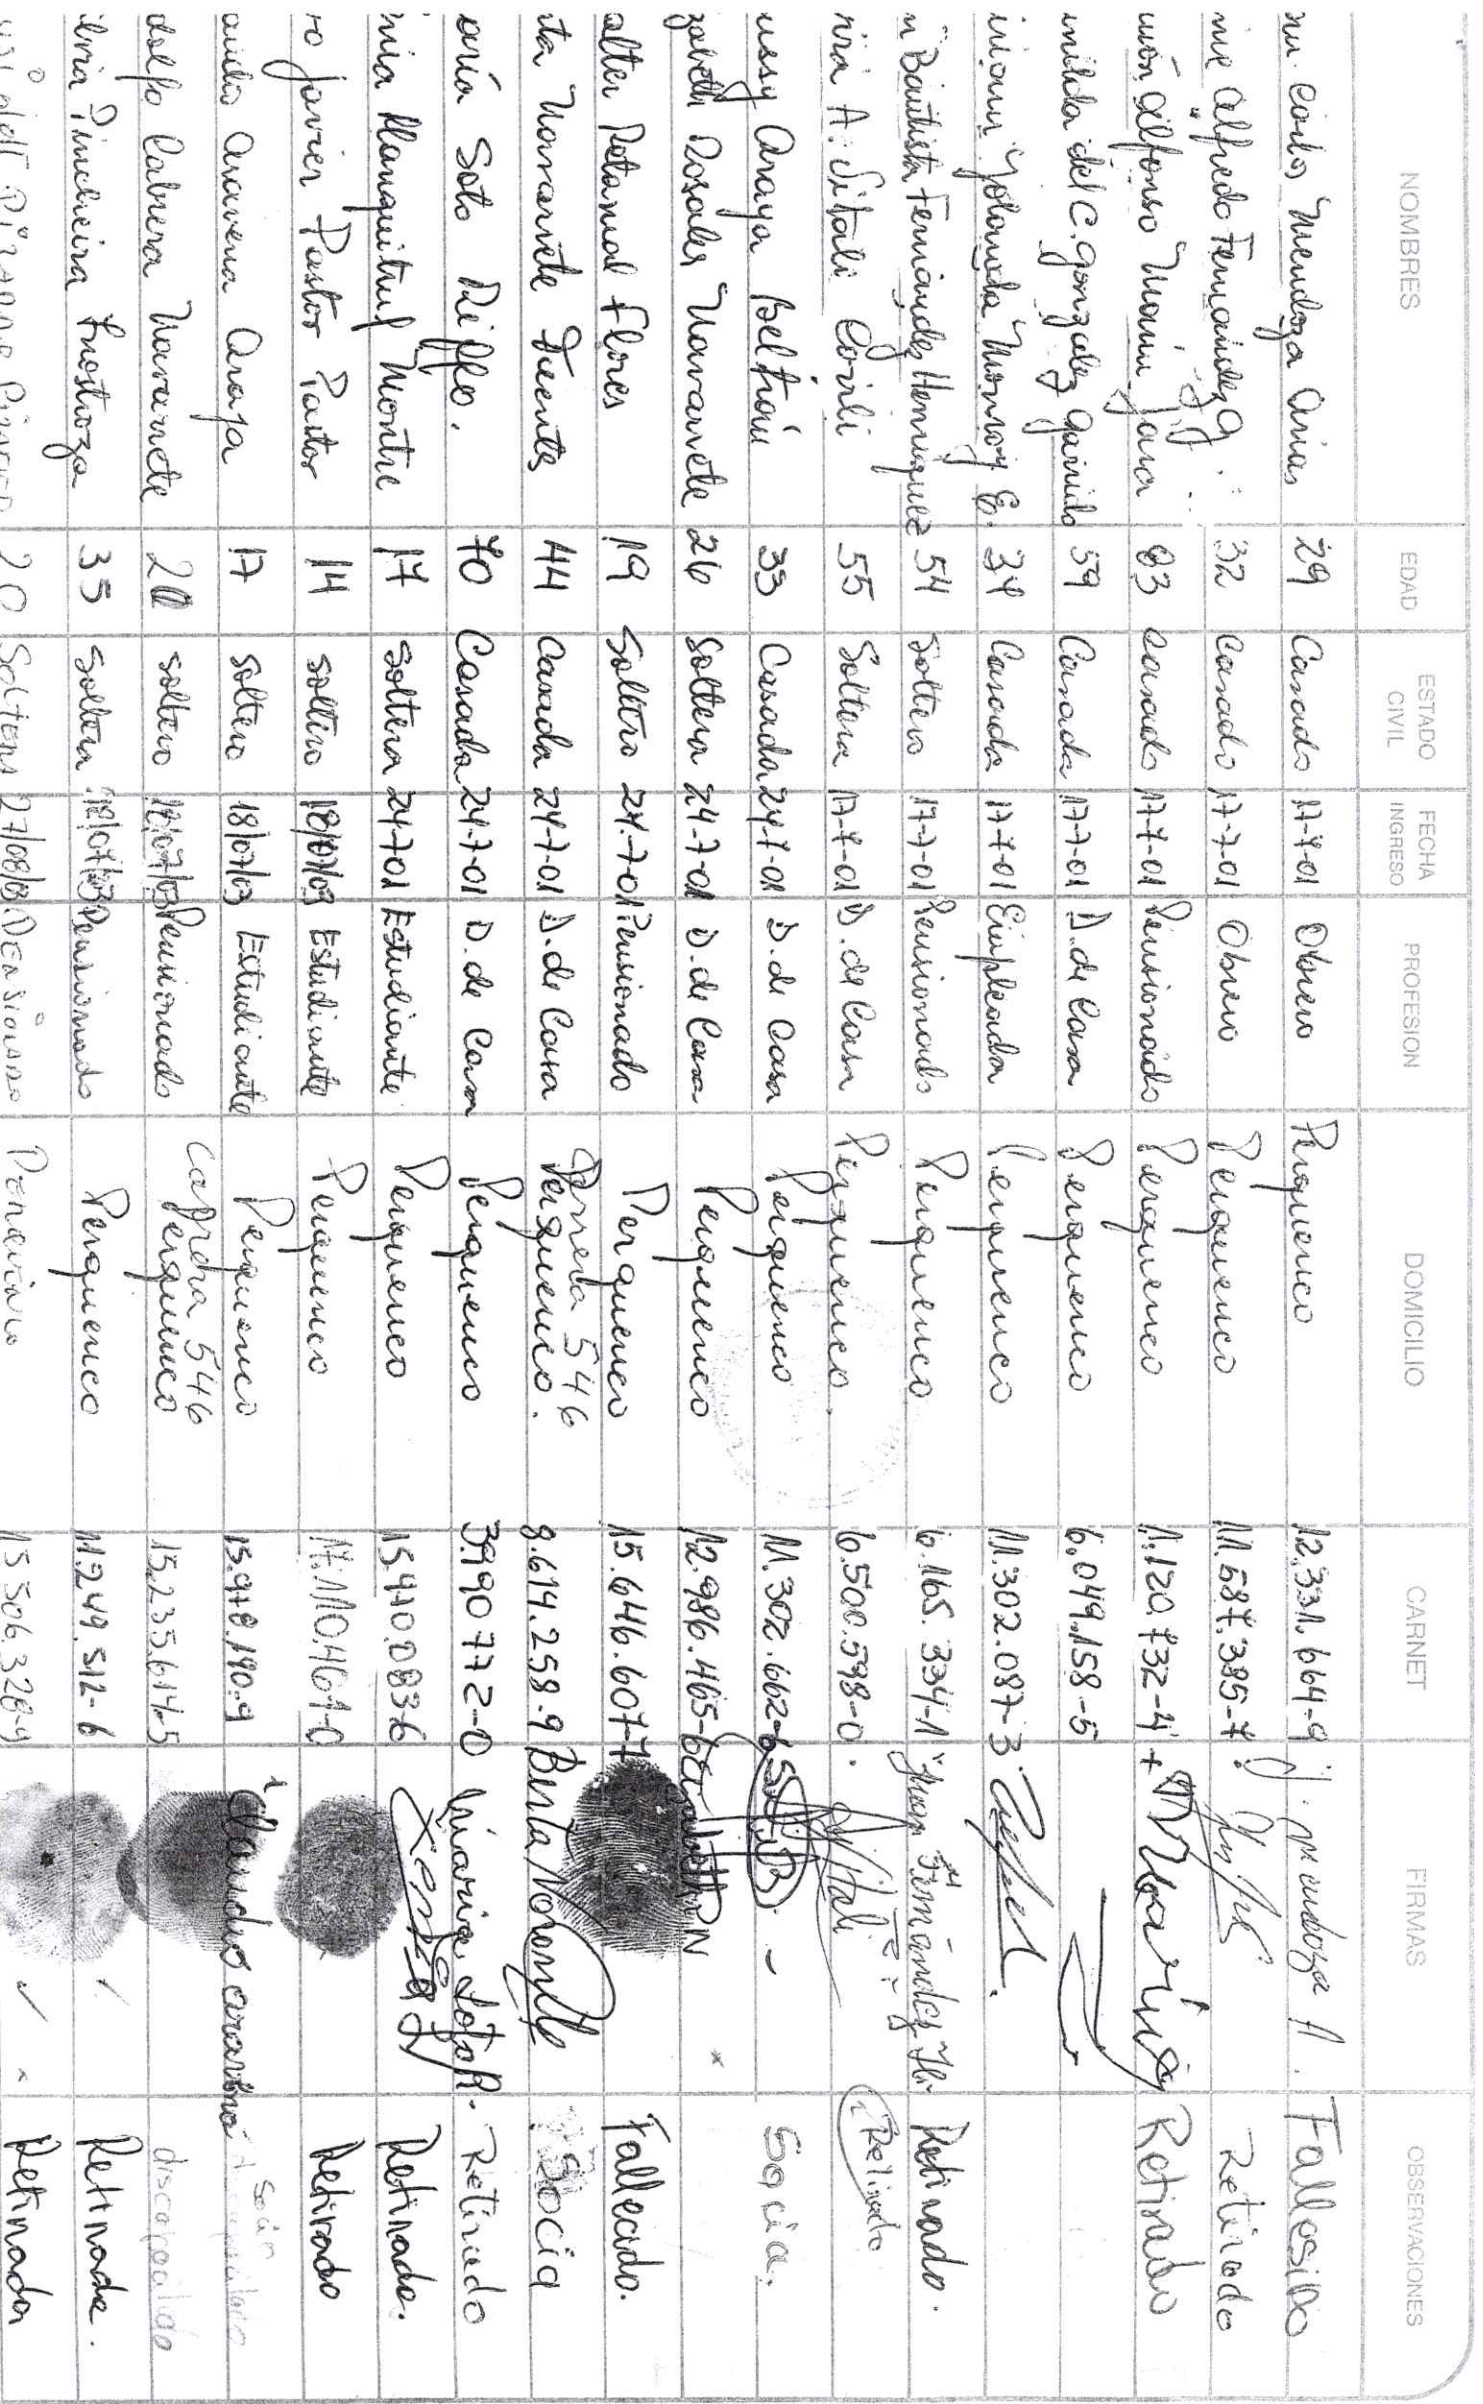 NOMBRES EDAD ESTADO CIVIL FECHA INGRESO PROFESION DOMICILIO CARNET FIRMAS OBSERVACIONES
Carlos Mendoza Arias 29 Casado 17-7-01 Obrero Perquenco 12.331.664-9 J. mendoza A. FalleSiDo
Alfredo Fernández G. 32 Casado 17-7-01 Obrero Perquenco 11.587.385-7 Retirado
món Alfonso Marin Jara 83 casado 17-7-01 Pensionado Perquenco 1.120.732-4 + R Marin Retirado
milda del C. Gonzalez Garrido 59 Casada 17-7-01 D. de Casa Perquenco 6.049.158-5
Yolanda Monroy E. 34 Casada 17-7-01 Empleada Perquenco 11.302.087-3
n Bautista Fernández Henriquez 54 Soltero 17-7-01 Pensionado Perquenco 6.165.334-1 Juan Fernández H Retirado.
nia A. Sitali Coñili 55 Soltera 17-7-01 D. de Casa Perquenco. 6.500.598-0. Retirado
ussy Araya Beltrán 33 Casada 24-7-01 D. de Casa Perquenco 11.302.662-6 Socia.
zabeth Rosales Navarrete 26 Soltera 24-7-01 D. de Casa Perquenco 12.986.465-6
alter Retamal Flores 19 Soltero 24-7-01 Pensionado Perquenco 15.646.607-7 Fallecido.
ta Navarrete Fuentes 44 Casada 24-7-01 D. de Casa Carrera 546 Perquenco. 8.614.258-9 Berta Navarrete Socia
aría Soto Riffo. 70 Casada 24-7-01 D. de Casa Perquenco 3.990.772-0 Maria Soto R. Retirado
nia Manquitruf Montre 17 Soltera 24-7-01 Estudiante Perquenco 15.970.083-6 Retirado.
ro Javier Pastor Pastor 14 soltero 18/07/03 Estudiante Perquenco 17.110.461-0 Retirado
audio Aravena Araya 17 soltero 18/07/03 Estudiante Perquenco 15.978.190-9 Claudio aravena Socio
dolfo Cabrera Navarrete 20 soltero 18/07/03 Pensionado Carrera 546 Perquenco 15.235.614-5 discapacitado
ilvia Pincheira Inostroza 35 Soltera 18/07/03 Pensionado Perquenco 11.249.512-6 Retirada.
20 Soltera 27/08/03 Pensionado 15.506.328-9 Retirada